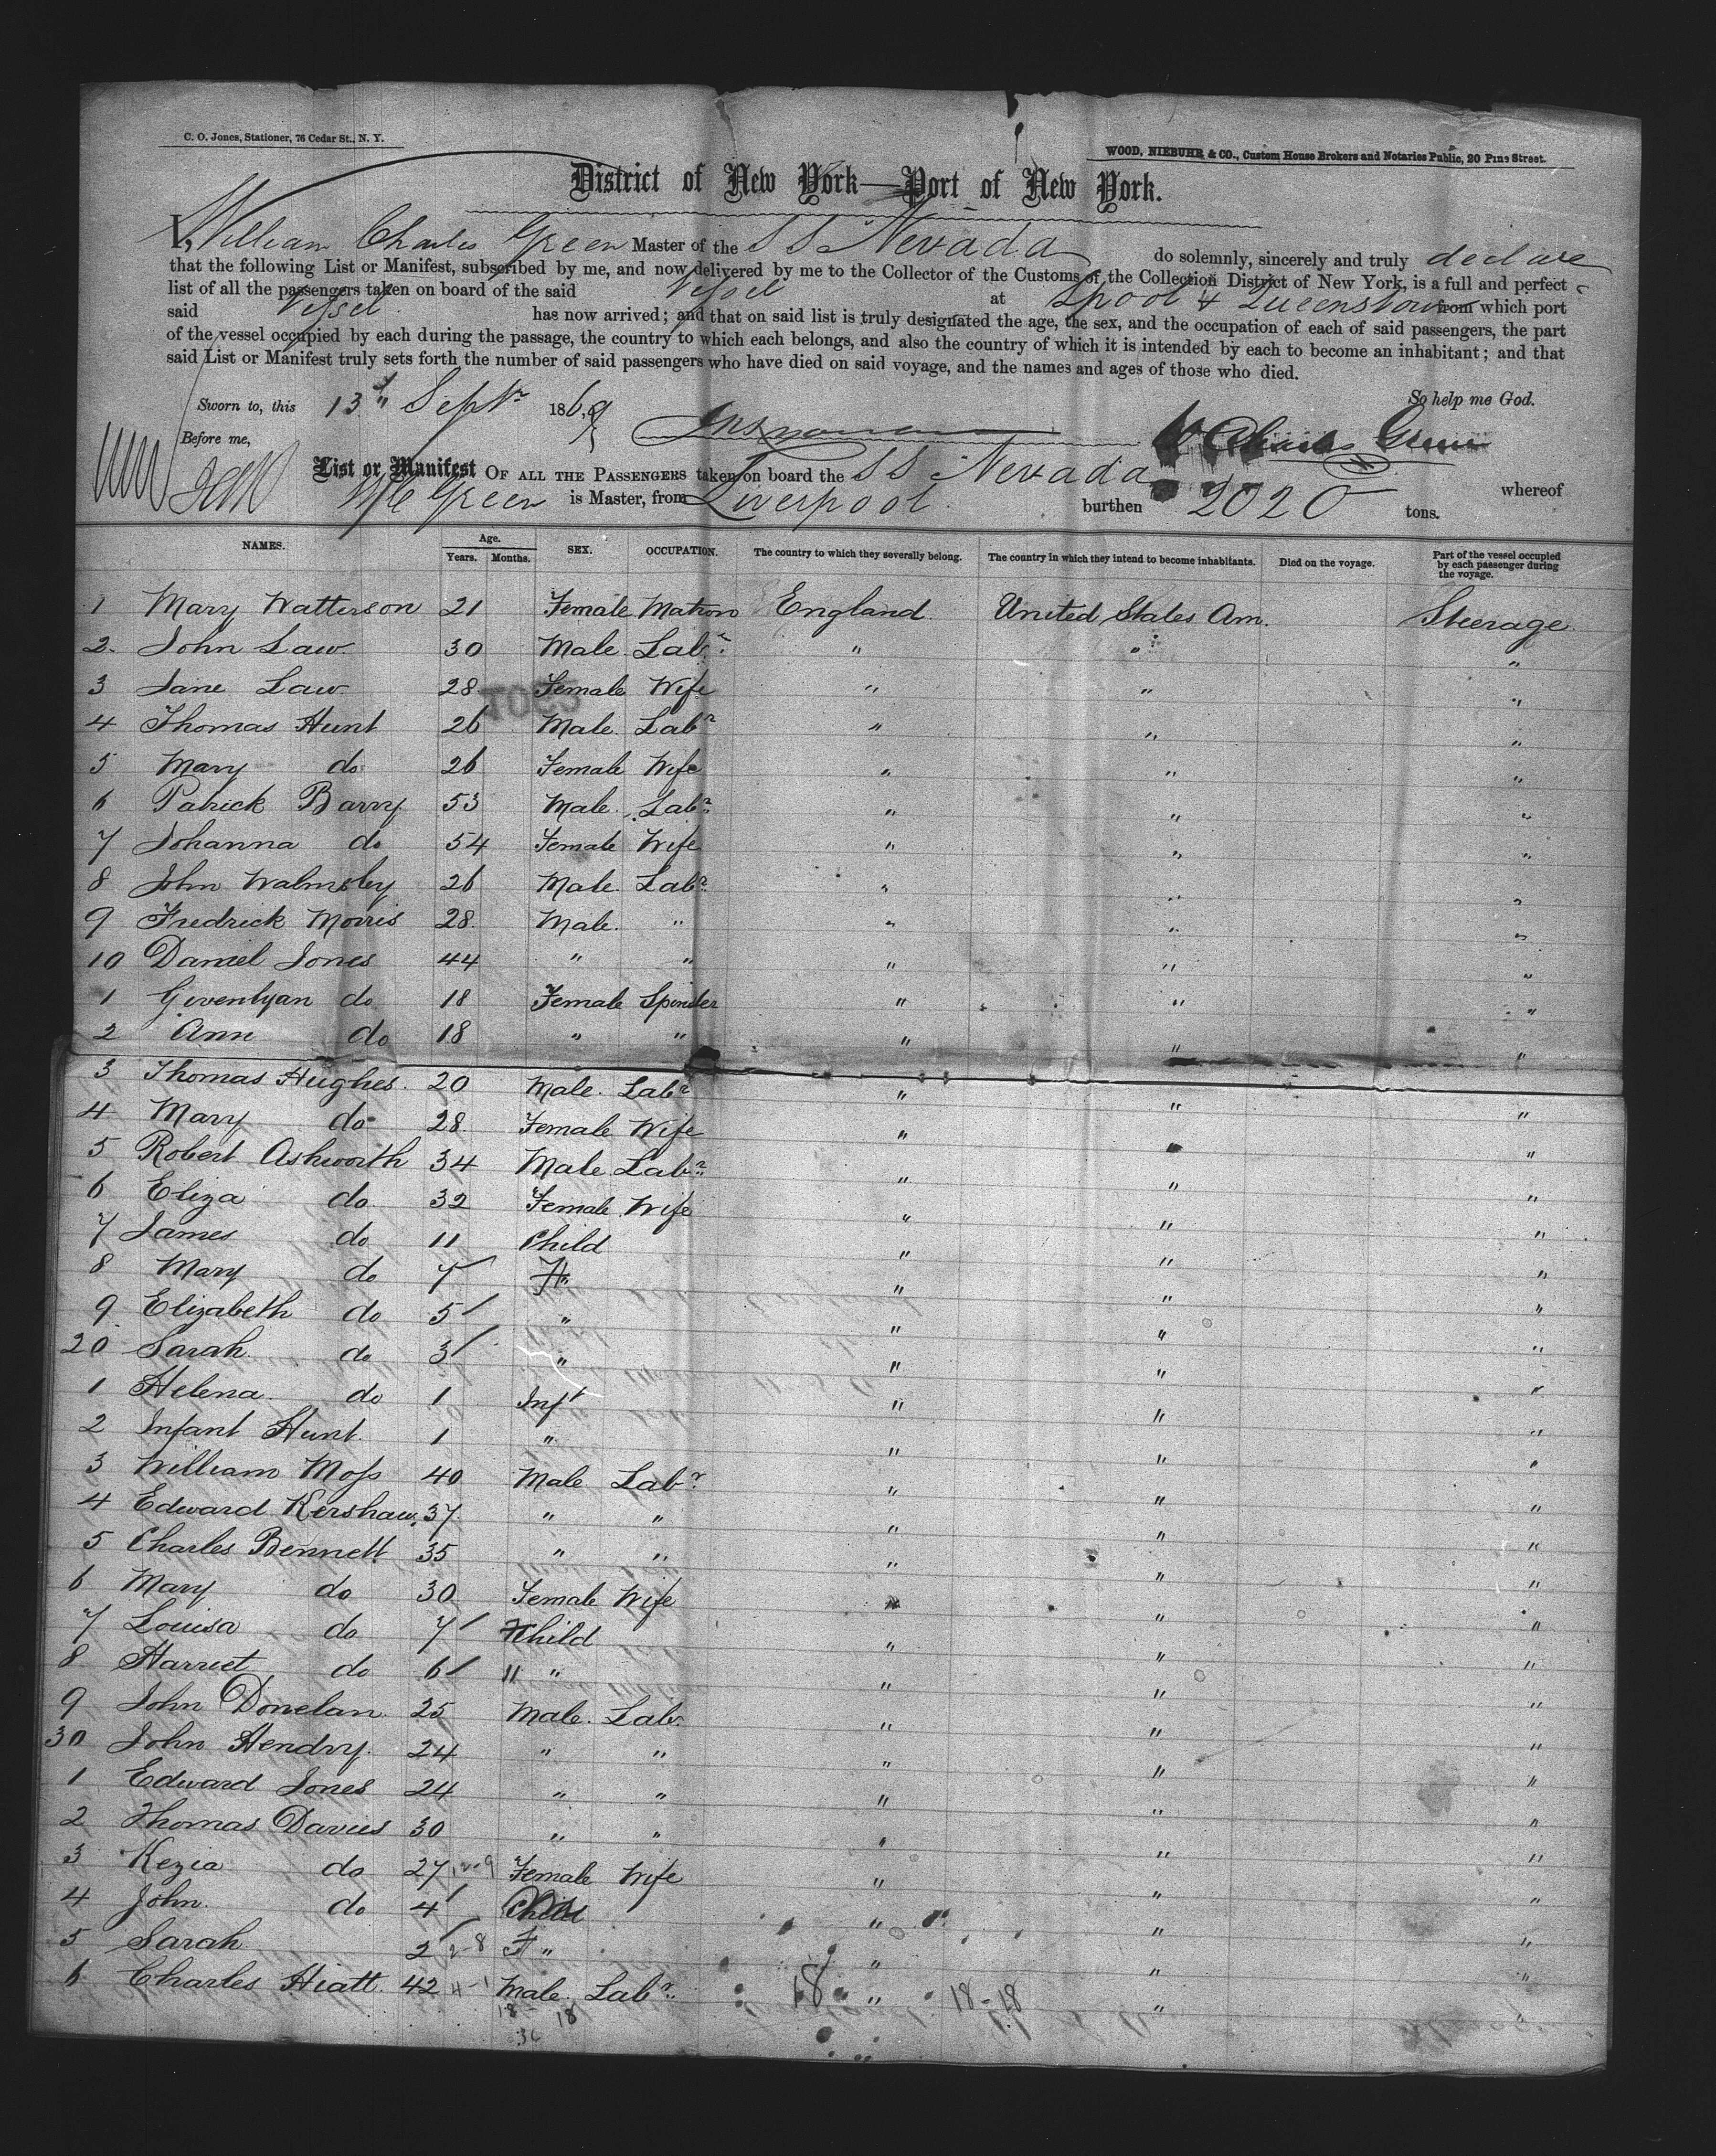 C. O. Jones, Stationer, 76 Cedar St., N. Y.
WOOD, NIEBUHR & CO., Custom House Brokers and Notaries Public, 20 Pine Street.
District of New York—Port of New York.
I, William Charles Green Master of the SS Nevada do solemnly, sincerely and truly declare
that the following List or Manifest, subscribed by me, and now delivered by me to the Collector of the Customs of the Collection District of New York, is a full and perfect
list of all the passengers taken on board of the said Vessel at Lpool & Queenstown from which port
said Vessel has now arrived; and that on said list is truly designated the age, the sex, and the occupation of each of said passengers, the part
of the vessel occupied by each during the passage, the country to which each belongs, and also the country of which it is intended by each to become an inhabitant; and that
said List or Manifest truly sets forth the number of said passengers who have died on said voyage, and the names and ages of those who died.
Sworn to, this 13" Septr 1869 So help me God.
Before me, W Charles Green
List or Manifest OF ALL THE PASSENGERS taken on board the SS Nevada whereof
W C Green is Master, from Liverpool burthen 2020 tons.
NAMES. Age. Years. Months. SEX. OCCUPATION. The country to which they severally belong. The country in which they intend to become inhabitants. Died on the voyage. Part of the vessel occupied by each passenger during the voyage.
1 Mary Watterson 21 Female Matron England United States Am. Steerage
2 John Law 30 Male Labr " " "
3 Jane Law 28 Female Wife " " "
4 Thomas Hunt 26 Male Labr " " "
5 Mary do 26 Female Wife " " "
6 Patrick Barry 53 Male Labr " " "
7 Johanna do 54 Female Wife " " "
8 John Walmsley 26 Male Labr " " "
9 Fredrick Morris 28 Male " " " "
10 Daniel Jones 44 " " " " "
1 Gwenlyan do 18 Female Spinster " " "
2 Ann do 18 " " " " "
3 Thomas Hughes 20 Male Labr " " "
4 Mary do 28 Female Wife " " "
5 Robert Ashworth 34 Male Labr " " "
6 Eliza do 32 Female Wife " " "
7 James do 11 Child " " "
8 Mary do 7 F " " " "
9 Elizabeth do 5 " " " "
20 Sarah do 3 " " " "
1 Helena do 1 Inft " " "
2 Infant Hunt 1 " " " "
3 William Moss 40 Male Labr " " "
4 Edward Kershaw 37 " " " " "
5 Charles Bennett 35 " " " " "
6 Mary do 30 Female Wife " " "
7 Louisa do 7 Child " " "
8 Harriet do 6 " " " " "
9 John Donelan 25 Male Labr " " "
30 John Hendry 24 " " " " "
1 Edward Jones 24 " " " " "
2 Thomas Davies 30 " " " " "
3 Kezia do 27 12-9 Female Wife " " "
4 John do 4 Child " " "
5 Sarah 2 2-8 F " " " "
6 Charles Hiatt 42 4-1 Male Labr 18 " 18-18 " "
18 18
36